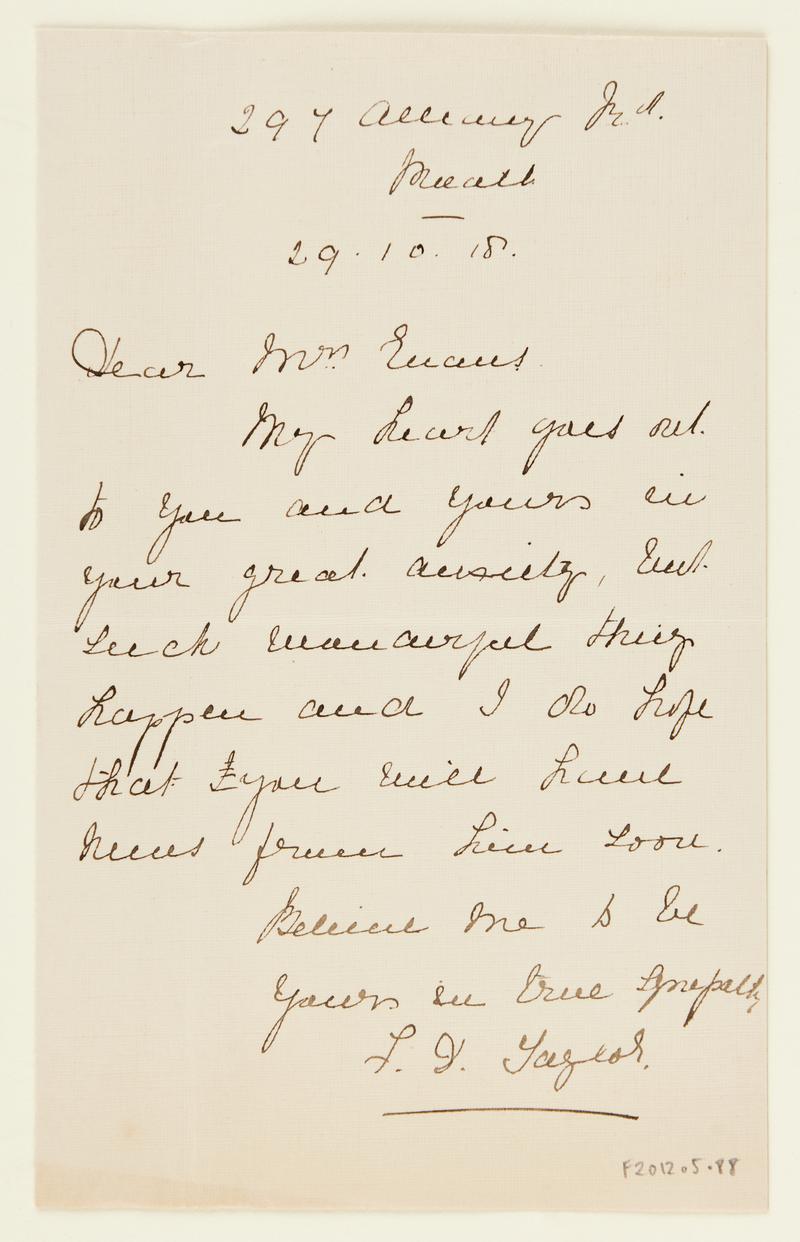 297 Albany Rd.
29.10.18.
Dear Mrs Evans
My heart goes out
to you and yours in
your great anxiety, but
such wonderful things
happen and I do hope
that you will have
news from him soon.
Believe me to be
Yours in true sympathy
F. D. Taylor.
F2012.5.88